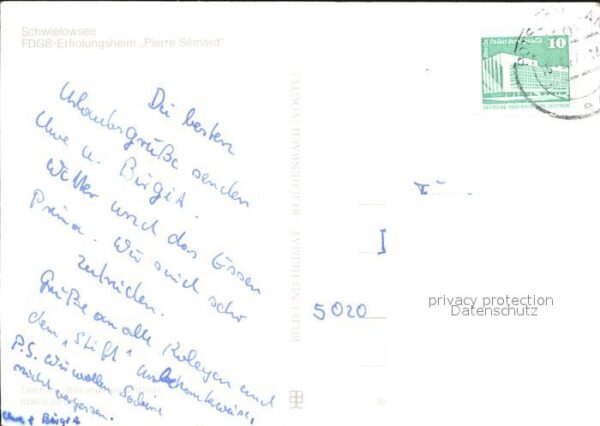 Schwielowsee
FDGB-Erholungsheim "Pierre Semard"
Die besten
Urlaubsgrüße senden
Uwe u. Birgit.
Wetter und das Essen
Prima. Wir sind sehr
zufrieden.
Grüße an alle Kolegen und
dem "Stift" unbekannterweise,
P.S. Wir wollen Sabine
nicht vergessen.
Uwe + Birgit
BILD UND HEIMAT REICHENBACH (VOGTL)
10
5020
privacy protection
Datenschutz